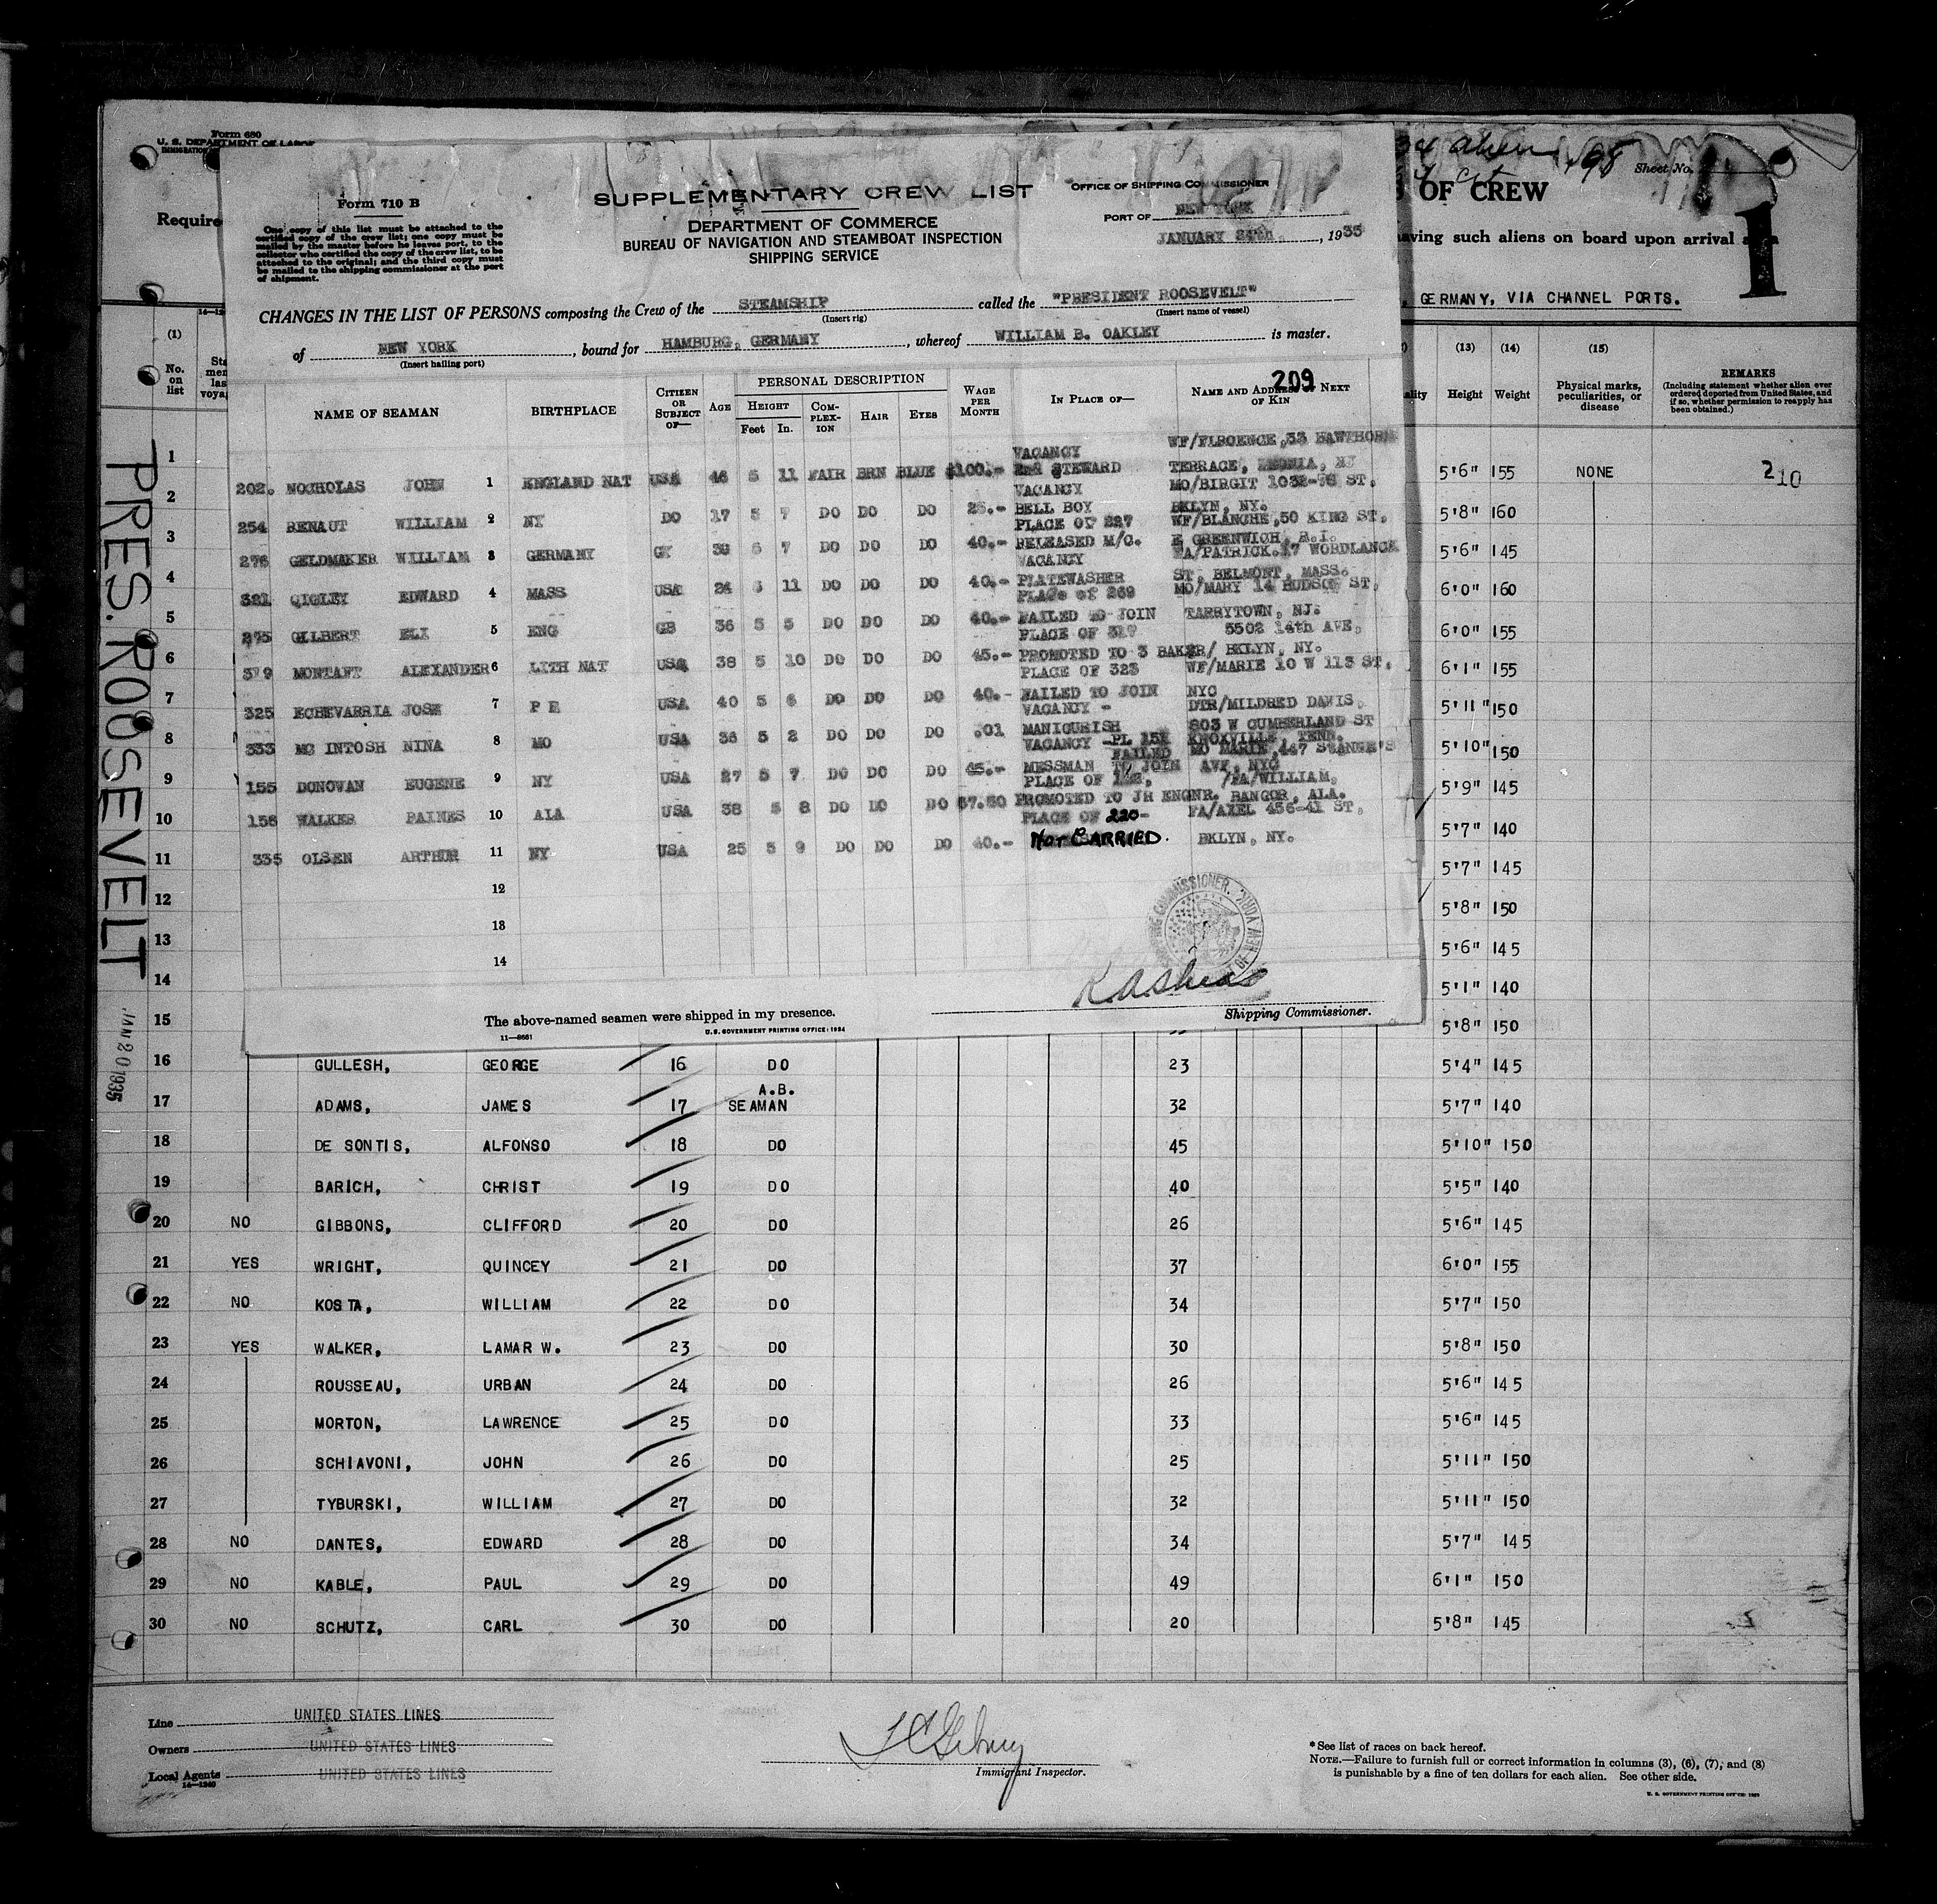 Form 680
U. S. DEPARTMENT OF LABOR
Require
alien
Sheet No.
OF CREW
1
having such aliens on board upon arrival
GERMANY, VIA CHANNEL PORTS.
Form 710 B
One copy of this list must be attached to the
certified copy of the crew list; one copy must be
mailed by the master before he leaves port, to the
collector who certified the copy of the crew list, to be
attached to the original; and the third copy must
be mailed to the shipping commissioner at the port
of shipment.
SUPPLEMENTARY CREW LIST
DEPARTMENT OF COMMERCE
BUREAU OF NAVIGATION AND STEAMBOAT INSPECTION
SHIPPING SERVICE
OFFICE OF SHIPPING COMMISSIONER
PORT OF NEW YORK
JANUARY , 1935
CHANGES IN THE LIST OF PERSONS composing the Crew of the STEAMSHIP called the "PRESIDENT ROOSEVELT"
(Insert rig) (Insert name of vessel)
of NEW YORK, bound for HAMBURG, GERMANY, whereof WILLIAM B. OAKLEY is master.
(Insert hailing port)
209
NAME OF SEAMAN BIRTHPLACE CITIZEN OR SUBJECT OF— AGE PERSONAL DESCRIPTION HEIGHT Feet In. COMPLEXION HAIR EYES WAGE PER MONTH IN PLACE OF— NAME AND ADDRESS OF NEXT OF KIN
VACANCY WF/FLROENCE,33 HAWTHORN
202. NOCHOLAS JOHN 1 ENGLAND NAT USA 46 5 11 FAIR BRN BLUE $100.- STEWARD TERRACE, NJ
VACANCY MO/BIRGIT ST.
254 RENAUT WILLIAM 2 NY DO 17 5 7 DO DO DO 25.- BELL BOY BKLYN, NY.
PLACE OF 227 WF/BLANCHE,50 KING ST.
276 GELDMAKER WILLIAM 3 GERMANY GY 38 5 7 DO DO DO 40.- RELEASED M/C. E GREENWICH, R.I.
VACANCY FA/PATRICK.17 WORDLANCK
321 QIGLEY EDWARD 4 MASS USA 24 5 11 DO DO DO 40.- PLATEWASHER ST, BELMONT, MASS.
PLACE OF 269 MO/MARY 14 HUDSON ST.
275 GILBERT ELI 5 ENG GB 36 5 5 DO DO DO 40.- FAILED TO JOIN TARRYTOWN, NJ.
PLACE OF 317 5502 14th AVE,
379 MONTANT ALEXANDER 6 LITH NAT USA 38 5 10 DO DO DO 45.- PROMOTED TO 3 BAKER/ BKLYN, NY.
PLACE OF 323 WF/MARIE 10 W 113 ST.
325 ECHEVARRIA JOSE 7 P E USA 40 5 6 DO DO DO 40.- FAILED TO JOIN NYC
VACANCY - DTR/MILDRED DAVIS,
333 MC INTOSH NINA 8 MO USA 36 5 2 DO DO DO .01 MANICURISH 803 W CUMBERLAND ST
VACANCY KNOXVILLE, TENN.
FAILED MO MARIE,447
155 DONOVAN EUGENE 9 NY USA 27 5 7 DO DO DO 45.- MESSMAN TO JOIN AVE, NYC
PLACE OF /FA/WILLIAM,
156 WALKER PAINES 10 ALA USA 38 5 8 DO DO DO 57.50 PROMOTED TO JR ENGNR. BANGOR, ALA.
PLACE OF 220- FA/AXEL 456-41 ST,
335 OLSEN ARTHUR 11 NY USA 25 5 9 DO DO DO 40.- NOT CARRIED. BKLYN, NY.
12
13
14
The above-named seamen were shipped in my presence.
Shipping Commissioner.
11—8661
U.S. GOVERNMENT PRINTING OFFICE: 1934
PRES. ROOSEVELT
JAN 20 1935
(1) (13) (14) (15)
No. on list Height Weight Physical marks, peculiarities, or disease
REMARKS
(Including statement whether alien ever ordered deported from United States, and if so, whether permission to reapply has been obtained.)
1 5'6" 155 NONE 210
2 5'8" 160
3 5'6" 145
4 6'0" 160
5 6'0" 155
6 6'1" 155
7 5'11" 150
8 5'10" 150
9 5'9" 145
10 5'7" 140
11 5'7" 145
12 5'8" 150
13 5'6" 145
14 5'1" 140
15 5'8" 150
16 GULLESH, GEORGE 16 DO 23 5'4" 145
17 ADAMS, JAMES 17 A.B. SEAMAN 32 5'7" 140
18 DE SONTIS, ALFONSO 18 DO 45 5'10" 150
19 BARICH, CHRIST 19 DO 40 5'5" 140
20 NO GIBBONS, CLIFFORD 20 DO 26 5'6" 145
21 YES WRIGHT, QUINCEY 21 DO 37 6'0" 155
22 NO KOSTA, WILLIAM 22 DO 34 5'7" 150
23 YES WALKER, LAMAR W. 23 DO 30 5'8" 150
24 ROUSSEAU, URBAN 24 DO 26 5'6" 145
25 MORTON, LAWRENCE 25 DO 33 5'6" 145
26 SCHIAVONI, JOHN 26 DO 25 5'11" 150
27 TYBURSKI, WILLIAM 27 DO 32 5'11" 150
28 NO DANTES, EDWARD 28 DO 34 5'7" 145
29 NO KABLE, PAUL 29 DO 49 6'1" 150
30 NO SCHUTZ, CARL 30 DO 20 5'8" 145
Line UNITED STATES LINES
Owners UNITED STATES LINES
Local Agents UNITED STATES LINES
14—1240
Immigrant Inspector.
*See list of races on back hereof.
NOTE.—Failure to furnish full or correct information in columns (3), (6), (7), and (8)
is punishable by a fine of ten dollars for each alien. See other side.
U. S. GOVERNMENT PRINTING OFFICE